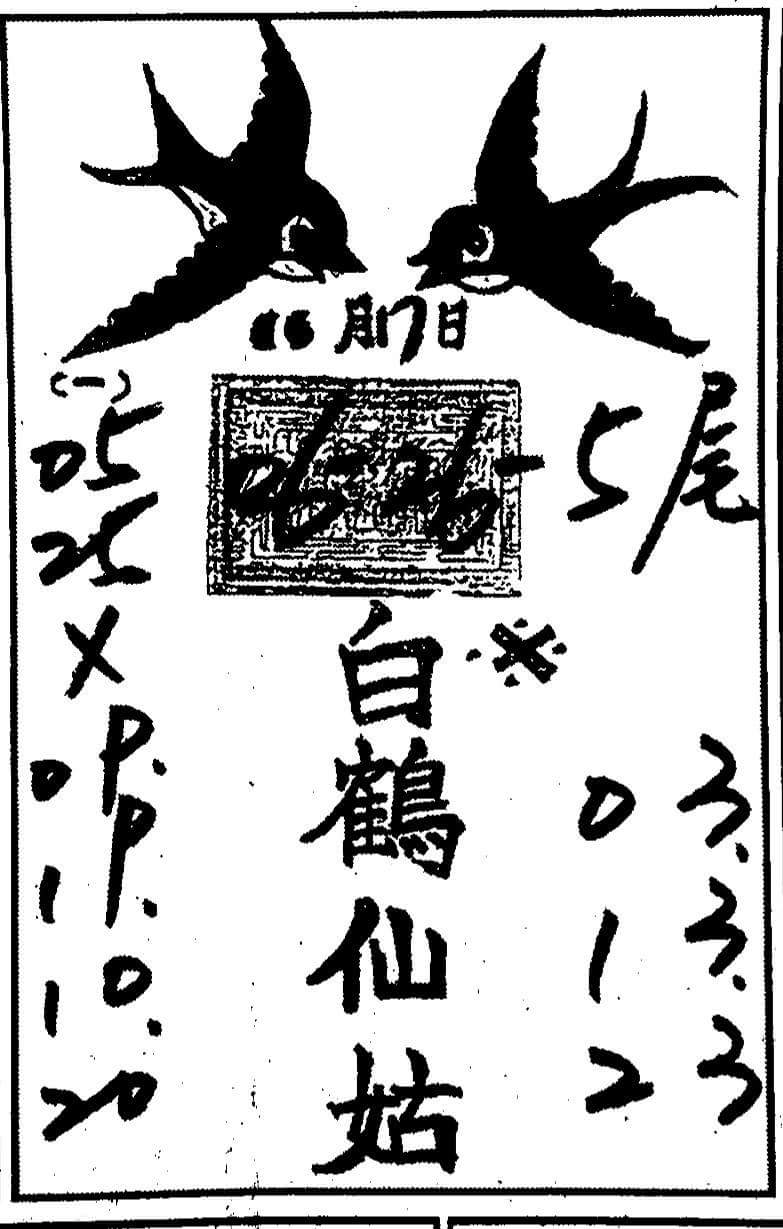 月17日
(一)
05
25
X
0P.
1P.
10.
20
06-26-
5/尾
白鶴仙姑
※
03.
13.
23